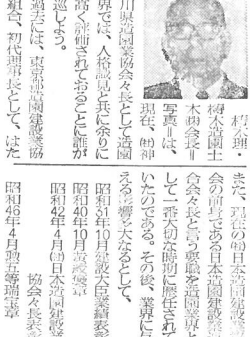 椿木土
木㈱会長＝
写真＝は、
現在、㈳神
川県造園業協会々長として造園
界では、人格識見と共に余りに
高く評価されておることに誰が
過去には、東京都造園建設業協
組合、初代理事長として、はた
また、現在の㈳日本造園建設業
会の前身である日本造園建設業
合会々長と言う要職を造園業界と
して一番大切な時期に歴任されて
いたのである。その後、業界に与
える影響も大なるとして、
昭和31年10月建設大臣業績表彰
昭和40年10月黄綬褒章
昭和42年4月㈳日本造園建設業
協会々長表彰
昭和46年4月勲五等瑞宝章